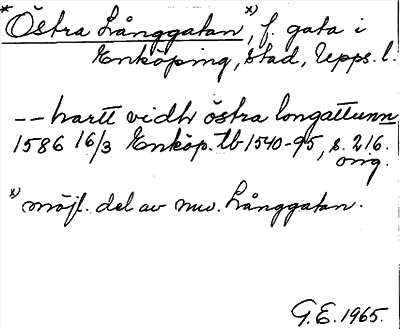 * Östra Långgatan *), f. gata i
Enköping, stad, Upps. l.
-- hartt vidh östra longattunn
1586 16/3 Enköp. tb 1540-95, s. 216.
orig.
*) möjl. del av nuv. Långgatan.
G.E. 1965.